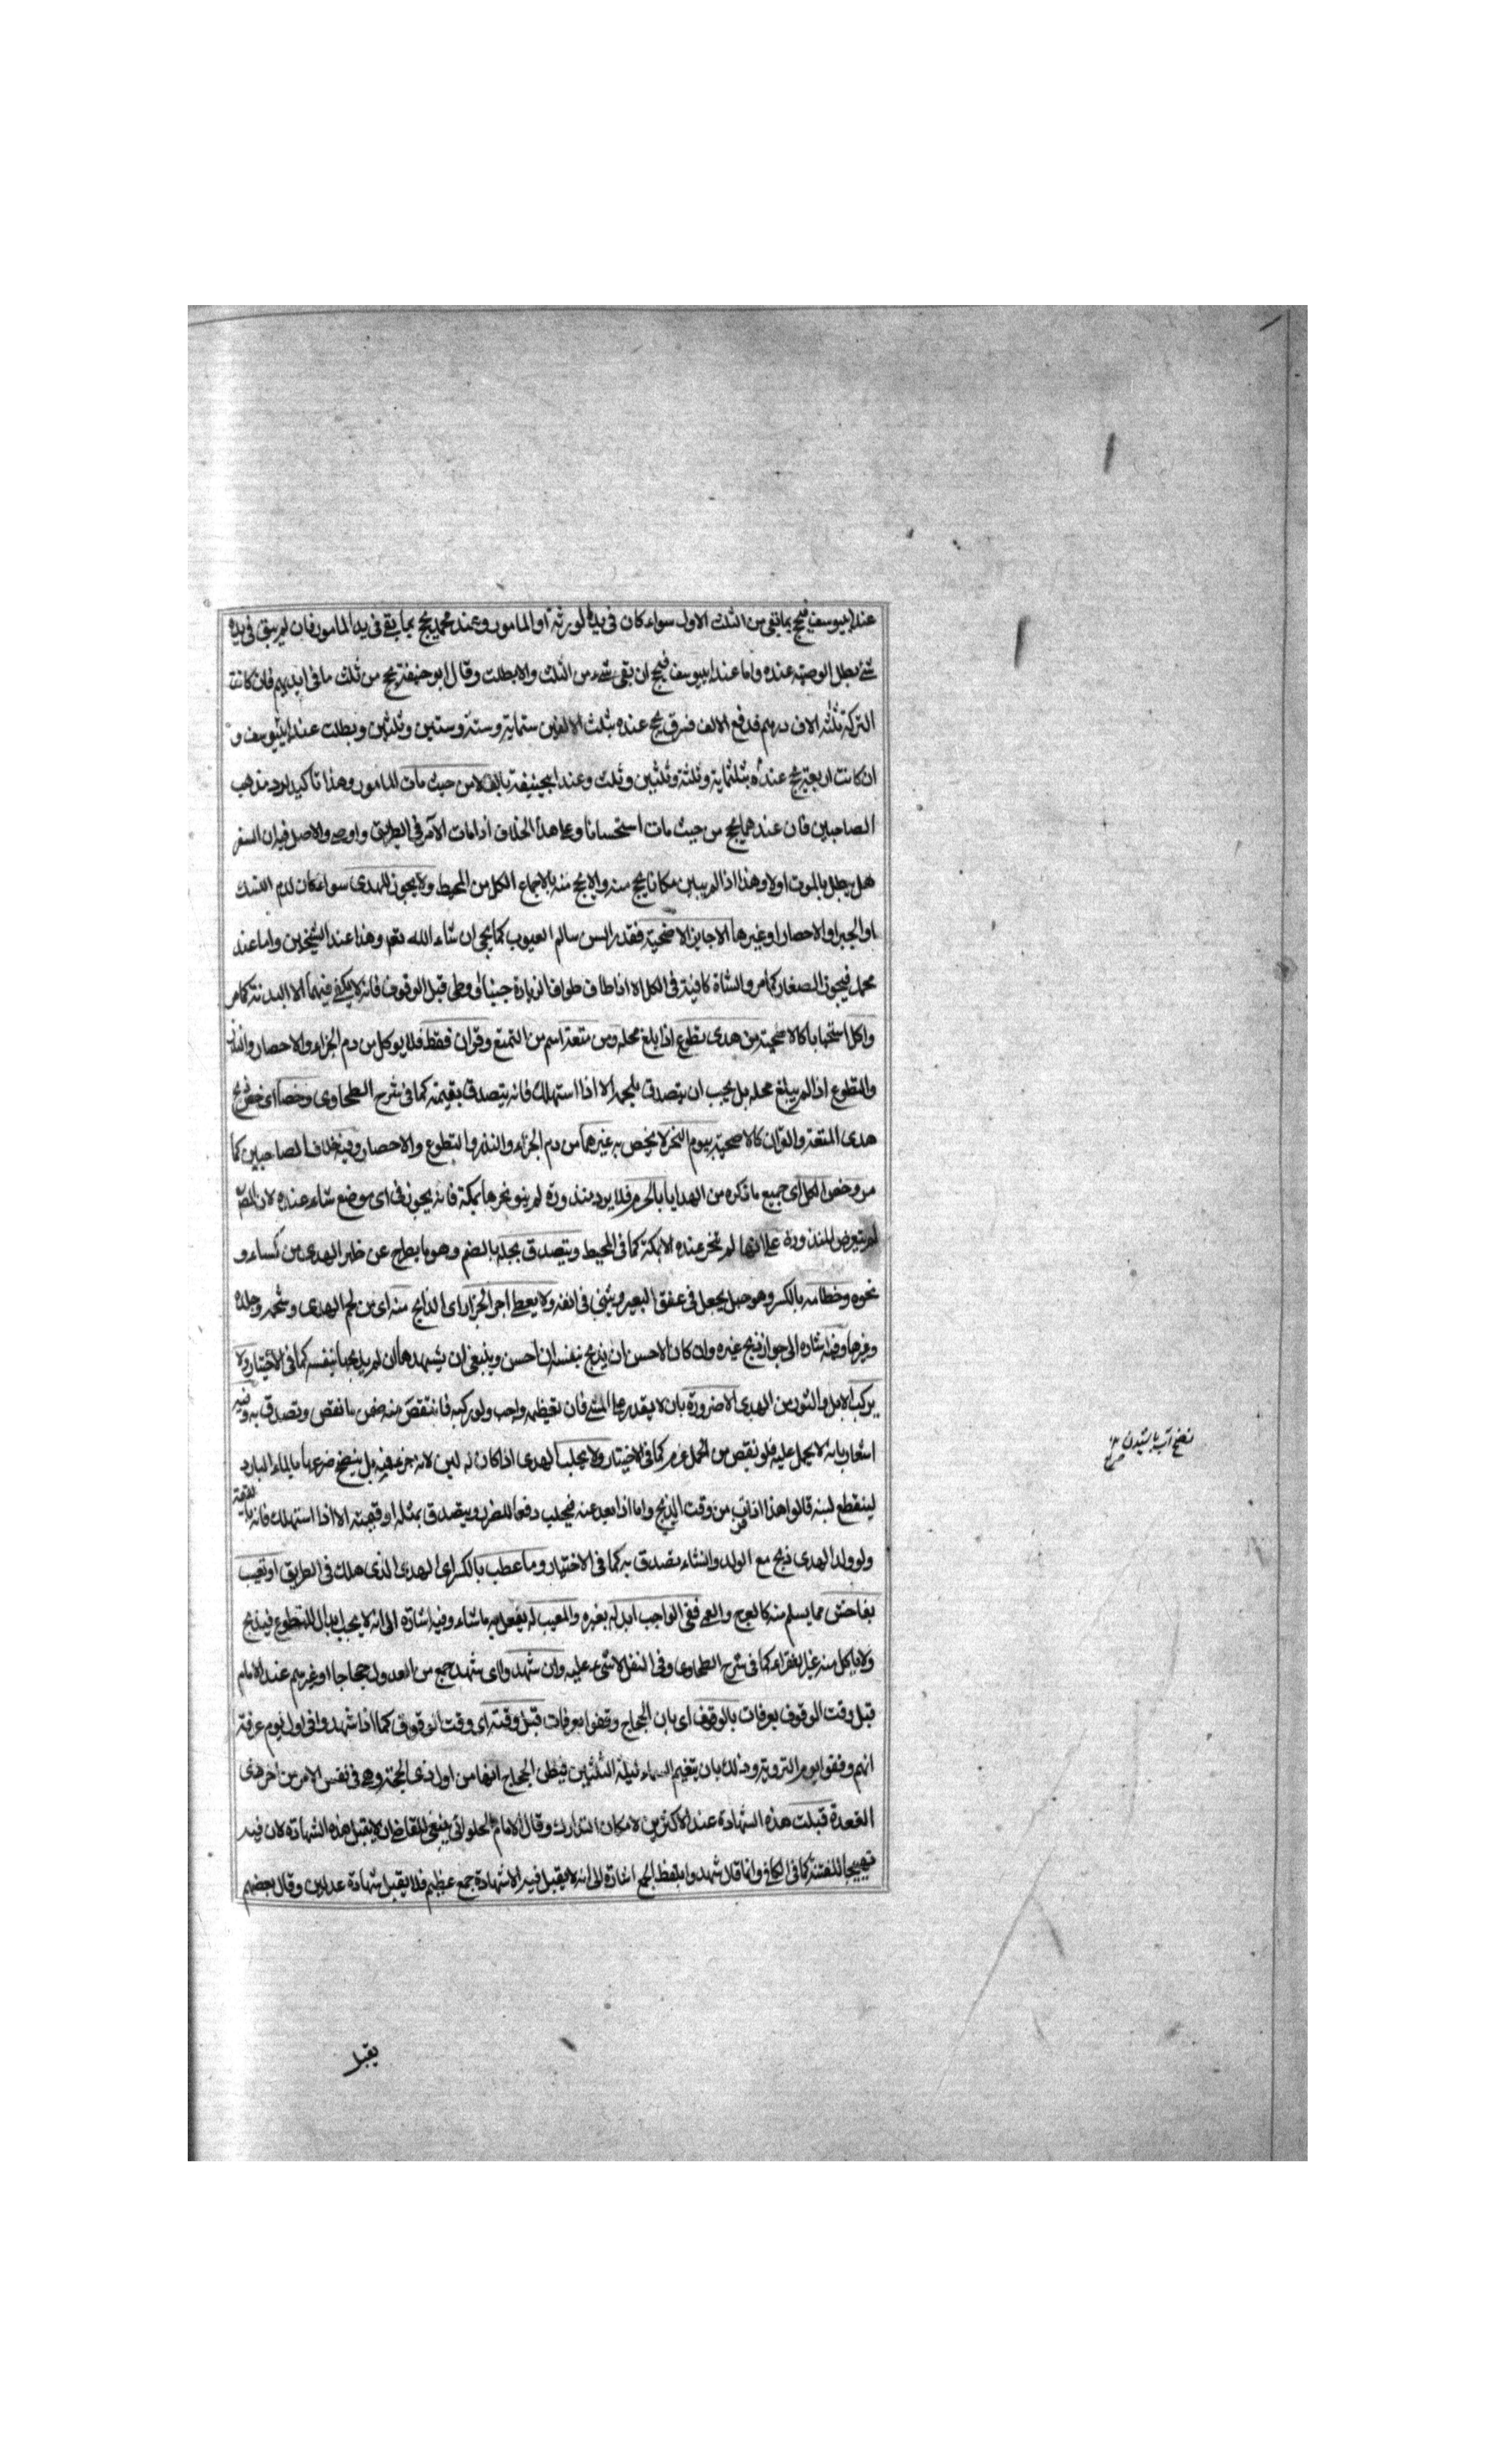 عند ابيوسف فيحج بما بقى من الثلث الاول سواء كان فى يده لورثة او المامور وعند محمد يحج بما بقى فى يد المامور فان لم يبق فى يده
شئ بطل الوصية عنده واما عند ابيوسف فيحج ان بقى شئ من الثلث والا بطلت وقال ابو حنيفة يحج من ثلث ما فى ايديهم فان كانت
التركة ثلثة الاف درهم فدفع الالف فسرق يحج عنده بثلث الالفين ستماية وستة وستين وثلثين وبطلت عند ابييوسف و
ان كانت اربعة يحج عنده بثلثماية وثلثة وثلثين وثلث وعند ابيحنيفة بالف لا من حيث مات المامور وهذا تاكيد لرد مذهب
الصاحبين فان عندهما يحج من حيث مات استحسانا وعلى هذا الخلاف اذا مات الآمر فى الطريق واوصى والاصل فيه ان السفر
هل يبطل بالموت اولا وهذا اذا لم يبين مكانا يحج منه والا يحج منه بالاجماع الكل من المحيط ولا يجوز للهدى سواء كان لدم النسك
او الجبر او الاحصار او غيرها الا جايز الاضحية فقدر السن سالم العيوب كما يجئ ان شاء الله تعم وهذا عند الشيخين واما عند
محمد فيجوز الصغار كما مر والشاة كافية فى الكل الا اذا طاف طواف الزيارة جنبا او وطى قبل الوقوف فانه لا يكفى فيهما الا البدنة كما مر
واكل استحبابا كالاضحية من هدى تطوع اذا بلغ محله ومن متعة اسم من التمتع وقران فقط فلا يوكل من دم الجزاء والاحصار والنذر
والتطوع اذا لم يبلغ محله بل يجب ان يتصدق بلحمه الا اذا استهلك فانه يتصدق بقيمته كما فى شرح الطحاوى وخصا اى خص ذبح
هدى المتعة والقران كالاضحية بيوم النحر لا يخص به غيرهما من دم الجزاء والنذر والتطوع والاحصار وفيه خلاف الصاحبين كما
مر وخص الكل اى جميع ما ذكره من الهدايا بالحرم فلا يرد منذورة لم ينو نحرها بمكة فانه يجوز فى اى موضع شاء عنده لان المص
لم يتعرض للمنذورة على انها لم تنحر عنده الا بمكة كما فى المحيط ويتصدق بجله بالضم وهو ما يطرح عن ظهر الهدى من كساء و
نحوه وخطامه بالكسر وهو حبل يجعل فى عنق البعير ويثنى فى انفه ولا يعطى اجر الجزار اى الذابح منه اى من لحم الهدى وشحمه وجلده
وغيرها وفيه اشاره الى جواز ذبح غيره وان كان الاحسن ان يذبح بنفسه ان احسن وينبغى ان يشهدها ان لم يذبحها بنفسه كما فى الاختيار ولا
يركب الابل والثور من الهدى الا ضرورة بان لا يقدر على المشى فان تعظيمه واجب ولو ركبه فانتقص منه ضمن ما نقص وتصدق به وفيه
اشعار بانه لا يحمل عليه فلو نقص من الحمل غرم كما فى الاختيار ولا يحلب الهدى اذا كان له لبن لانه جزء فيه بل ينضح ضرعها بالماء البارد
لينقطع لبنه قالوا هذا اذا قرب من وقت الذبح واما اذا بعد عنه فيحلب دفعا للضرر ويتصدق بمثله او قيمته الا اذا استهلك فانه بالقيمة
ولو ولد الهدى ذبح مع الولد وان شاء تصدق به كما فى الاختيار وما عطب بالكسر اى الهدى الذى هلك فى الطريق او تعيب
بفاحش مما يسلم منه كالعرج والعمى ففى الواجب ابدله بغيره والمعيب له يفعل به ما شاء وفيه اشارة الى انه لا يجب ابدال المتطوع فيذبح
ولا ياكل منه غير الفقراء كما فى شرح الطحاوى وفى النفل لا شئ عليه وان شهدوا اى شهد جمع من العدول حجاجا او غيرهم عند الامام
قبل وقت الوقوف بعرفات بالوقوف اى بان الحجاج وقفوا بعرفات قبل وقته اى وقت الوقوف كما اذا شهدوا فى اول يوم عرفة
انهم وقفوا يوم التروية وذلك بان يتغيم السماء ليلة الثلثين فيظن الحجاج انها من اول ذى الحجة وهى فى نفس الامر من اخر ذى
القعدة قبلت هذه الشهادة عند الاكثرين لامكان التدارك وقال الامام الحلوانى ينبغى للقاضى ان لا يقبل هذه الشهادة لان فيه
تهييجا للفتنة كما فى الكافى وانما قال شهدوا بلفظ الجمع اشارة الى انه لا يقبل فيه الا شهادة جمع عظيم فلا يقبل شهادة عدلين وقال بعضهم
يقبل
نضح آب پاشیدن